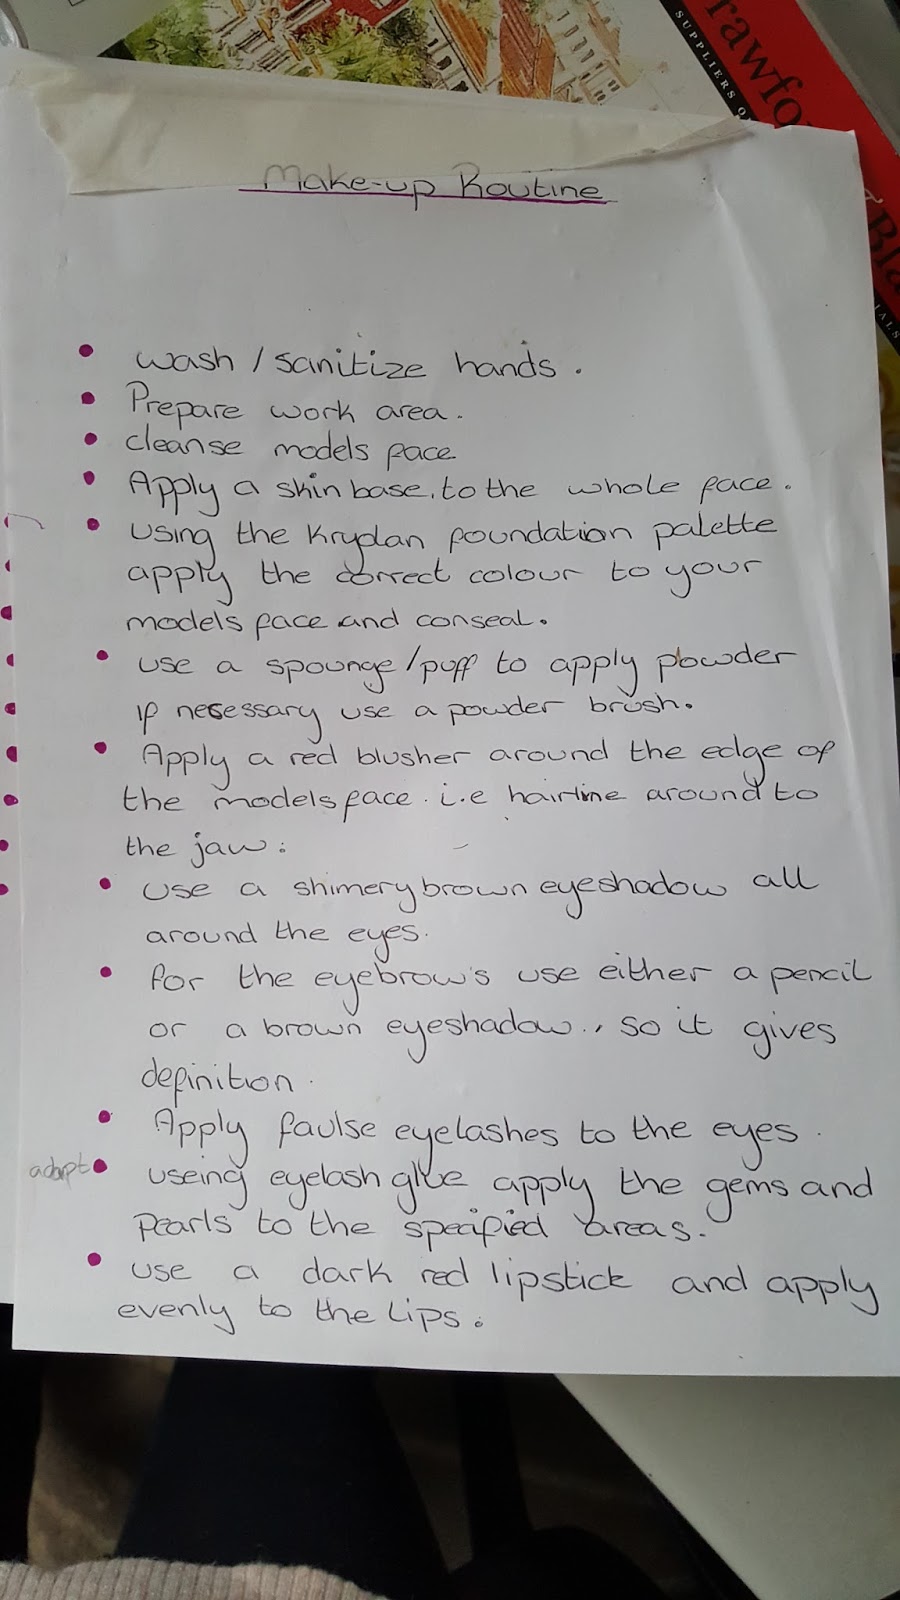 rawfo
SUPPLIERS O
Bla
IALS
Make-up Routine
• wash / sanitize hands.
• Prepare work area.
• cleanse models face
• Apply a skin base, to the whole face.
• using the Kryolan foundation palette
apply the correct colour to your
models face and conseal.
• use a spounge/puff to apply powder
if necessary use a powder brush.
• Apply a red blusher around the edge of
the models face. i.e hairline around to
the jaw.
• use a shimery brown eyeshadow all
around the eyes.
• for the eyebrow's use either a pencil
or a brown eyeshadow., so it gives
definition.
• Apply faulse eyelashes to the eyes.
adapt • useing eyelash glue apply the gems and
Pearls to the specified areas.
• use a dark red lipstick and apply
evenly to the lips.